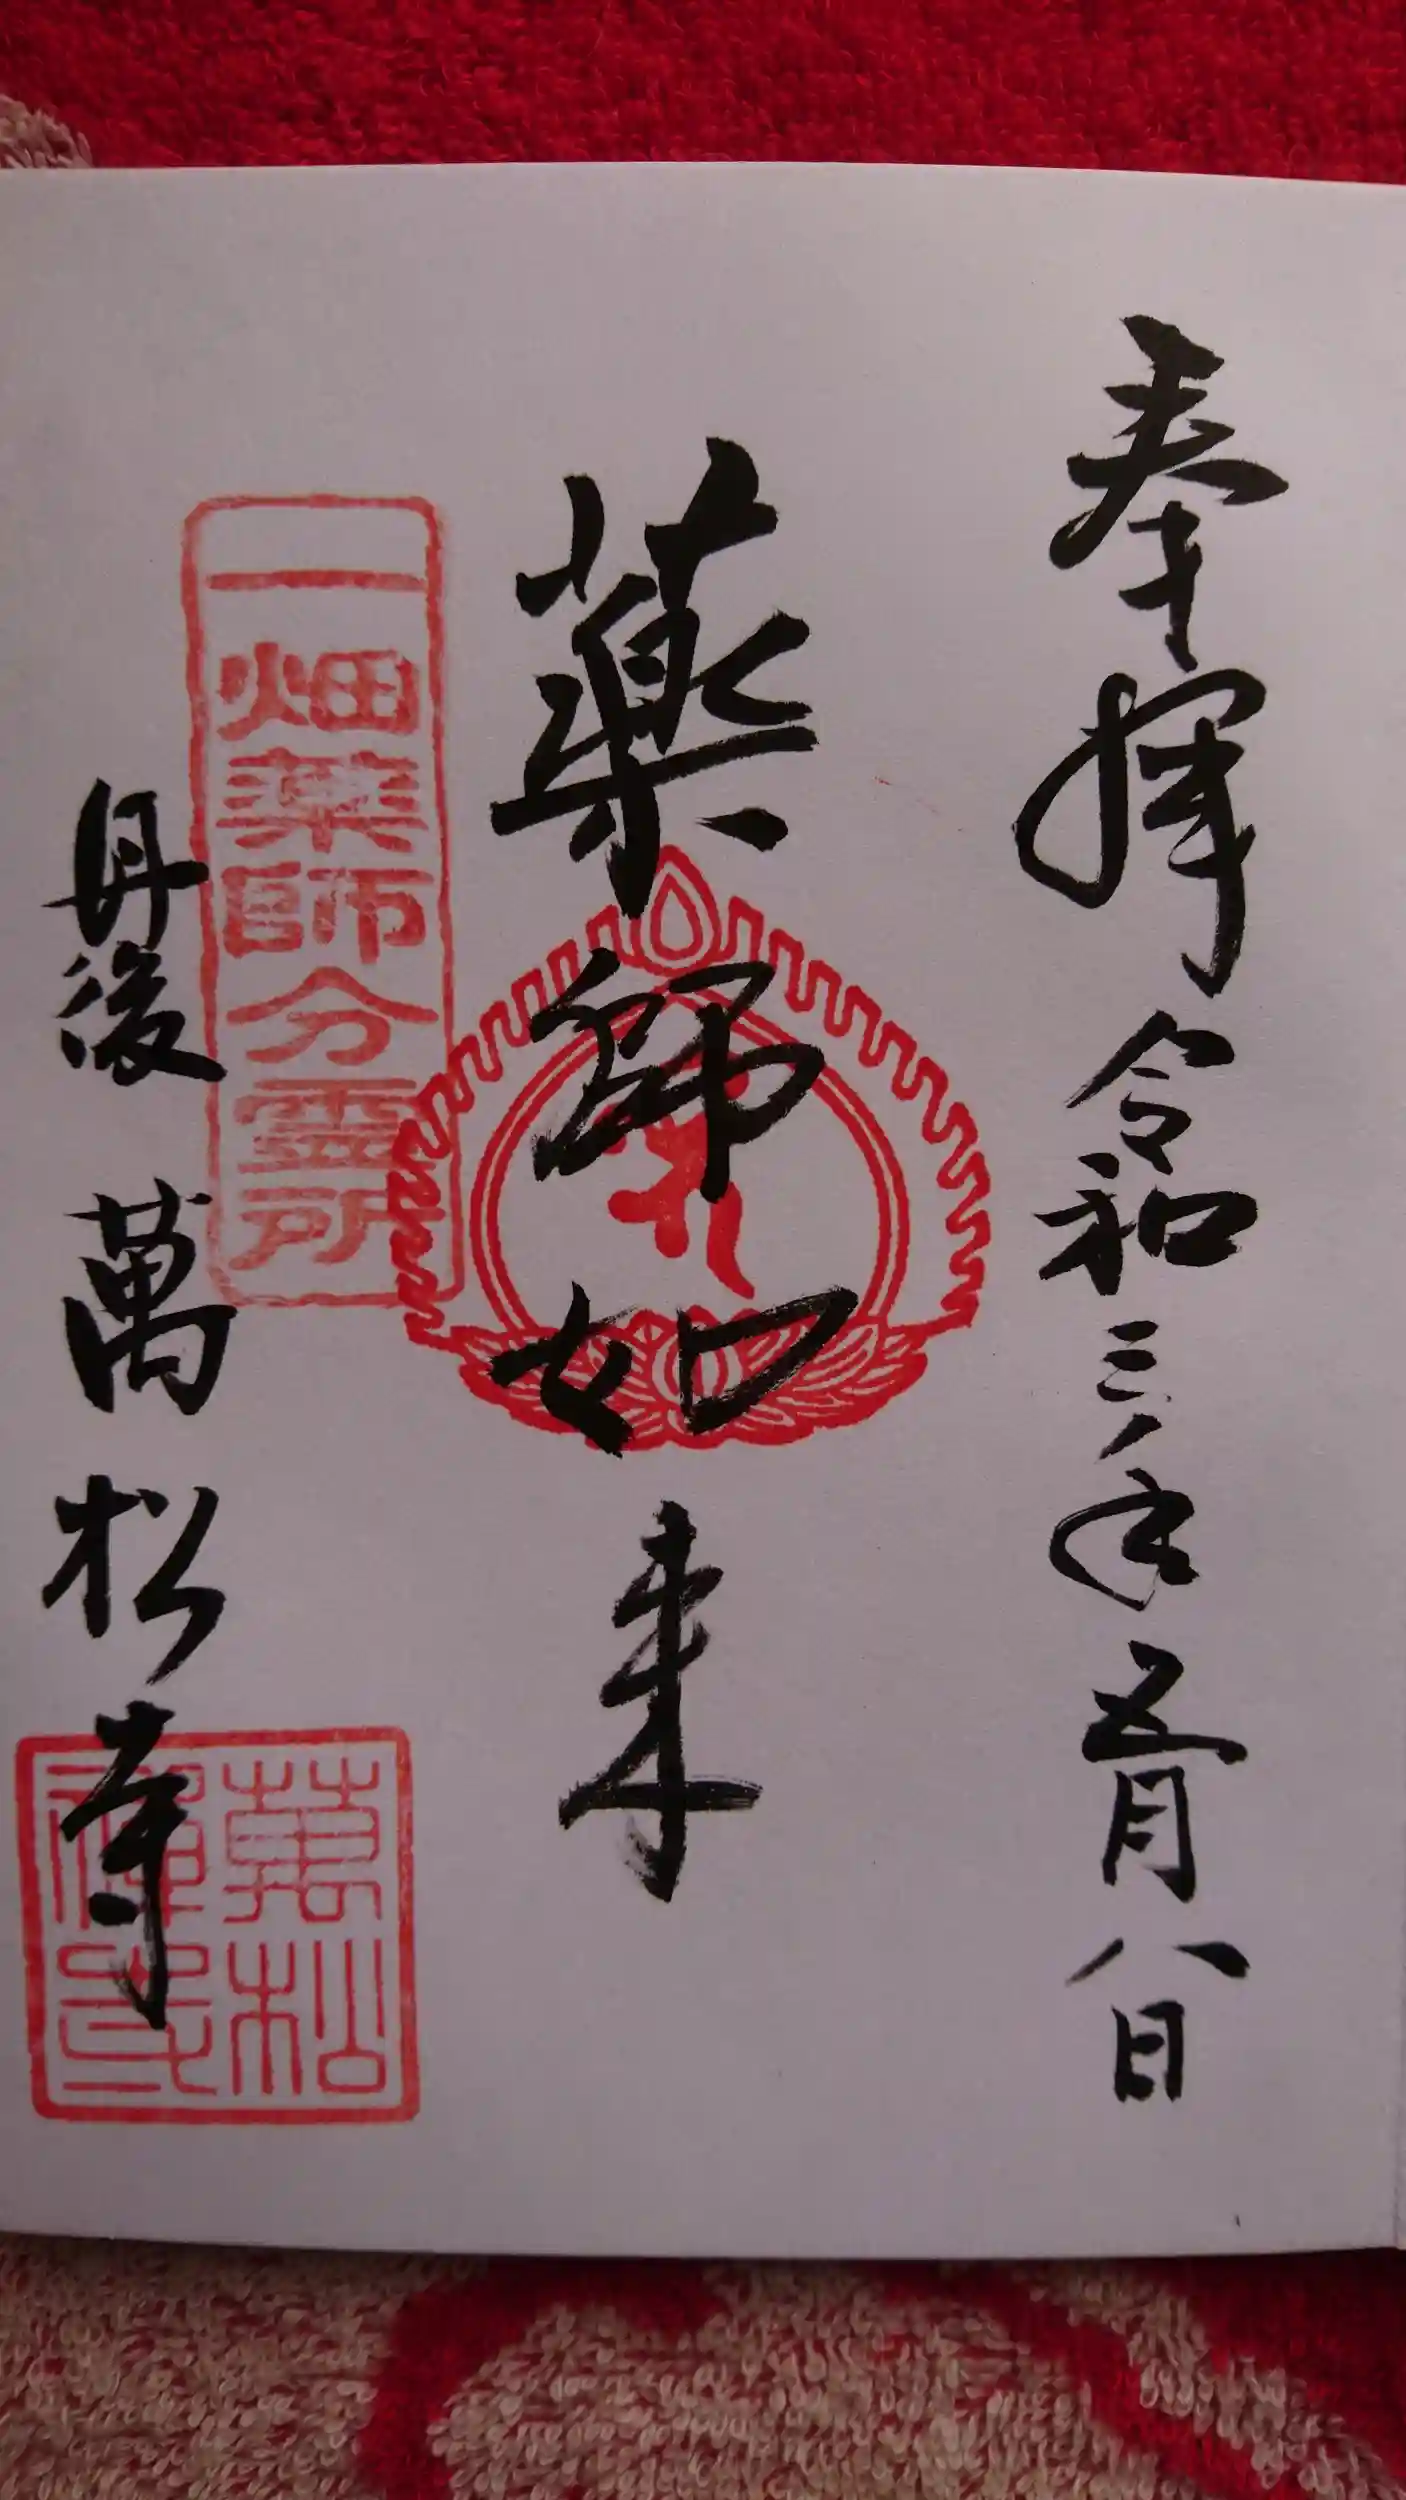 奉拝 令和三年五月八日
薬師如来
一畑薬師分霊所
丹後 萬松寺
萬松